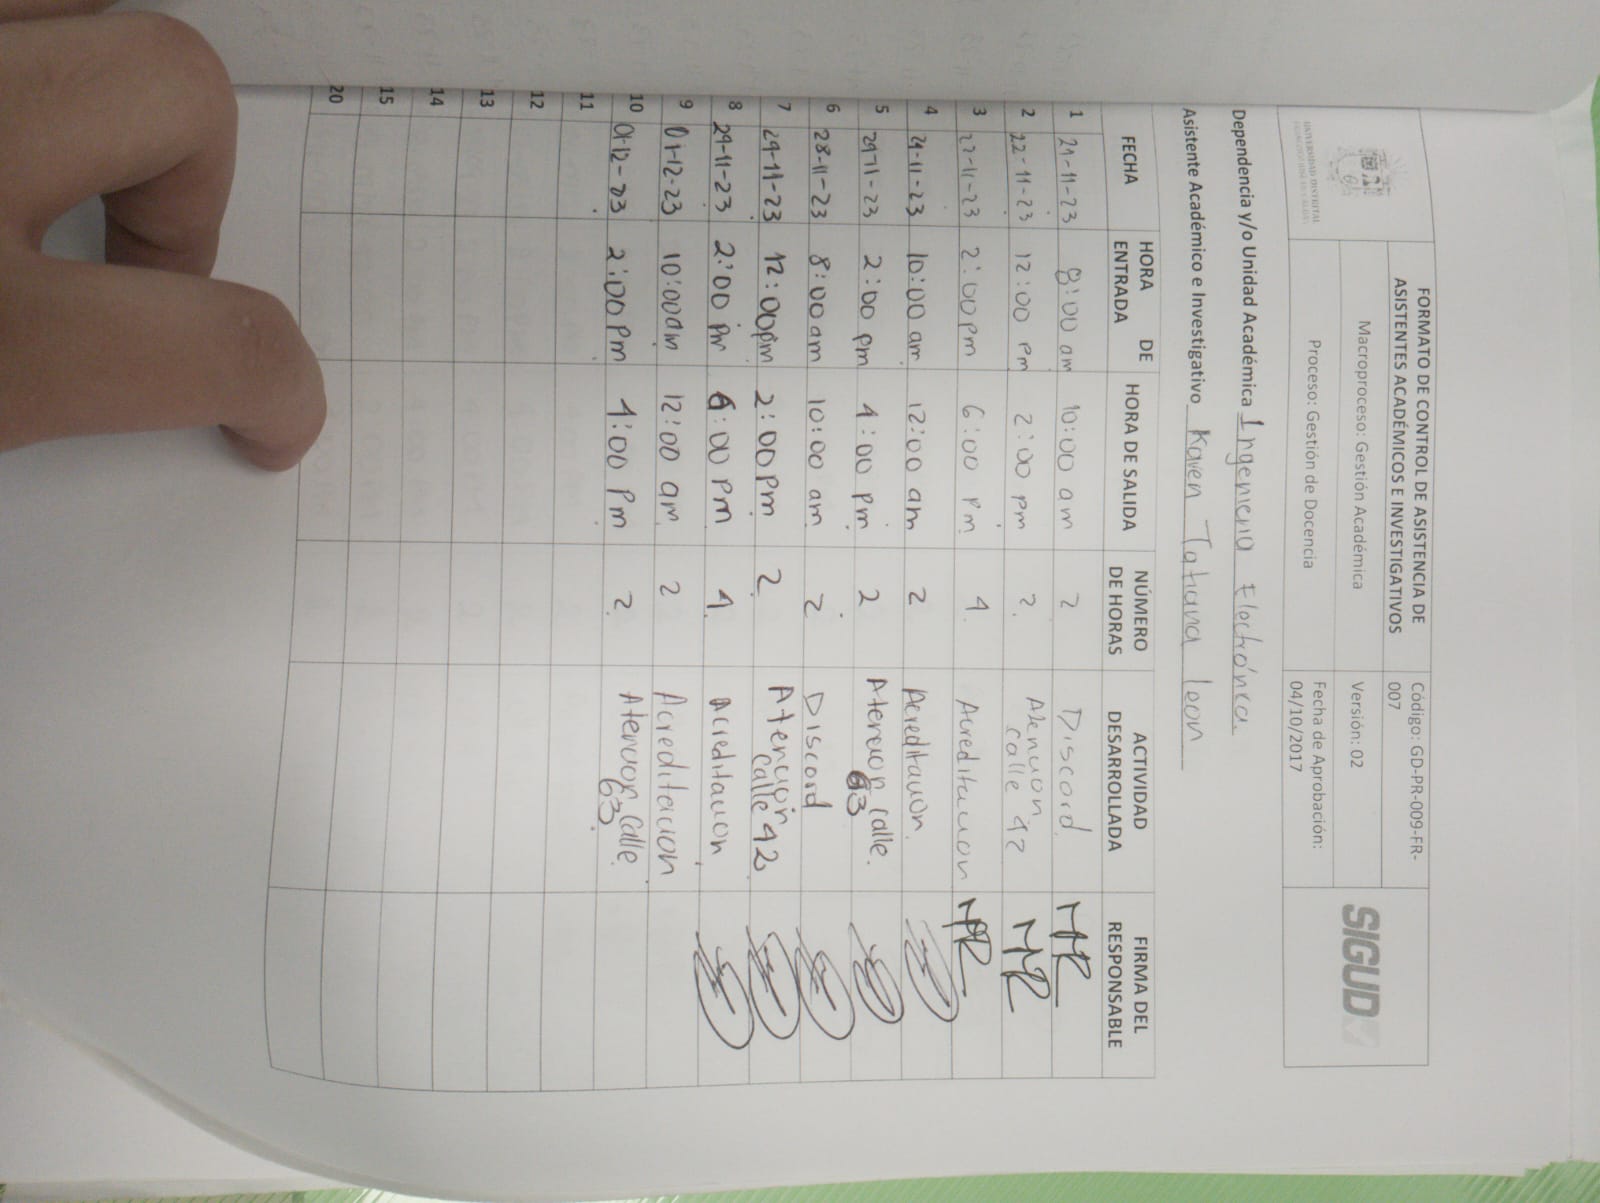 UNIVERSIDAD DISTRITAL
FORMATO DE CONTROL DE ASISTENCIA DE
ASISTENTES ACADÉMICOS E INVESTIGATIVOS
Código: GD-PR-009-FR-
007
Macroproceso: Gestión Académica
Versión: 02
Proceso: Gestión de Docencia
Fecha de Aprobación:
04/10/2017
SIGUD
Dependencia y/o Unidad Académica Ingenieria Electrónica
Asistente Académico e Investigativo Karen Tatiana leon
FECHA HORA DE ENTRADA HORA DE SALIDA NÚMERO DE HORAS ACTIVIDAD DESARROLLADA FIRMA DEL RESPONSABLE
1 21-11-23 8:00 am 10:00 am 2 Discord
2 22-11-23 12:00 pm 2:00 pm 2 Atencion calle 42
3 22-11-23 2:00 pm 6:00 pm 4 Acreditacion
4 24-11-23 10:00 am 12:00 am 2 Acreditacion
5 24-11-23 2:00 pm 4:00 pm 2 Atencion calle 63
6 28-11-23 8:00 am 10:00 am 2 Discord
7 29-11-23 12:00 pm 2:00 pm 2 Atencion calle 42
8 29-11-23 2:00 pm 6:00 pm 4 Acreditacion
9 01-12-23 10:00 am 12:00 am 2 Acreditacion
10 01-12-23 2:00 pm 4:00 pm 2 Atencion calle 63
11
12
13
14
15
20